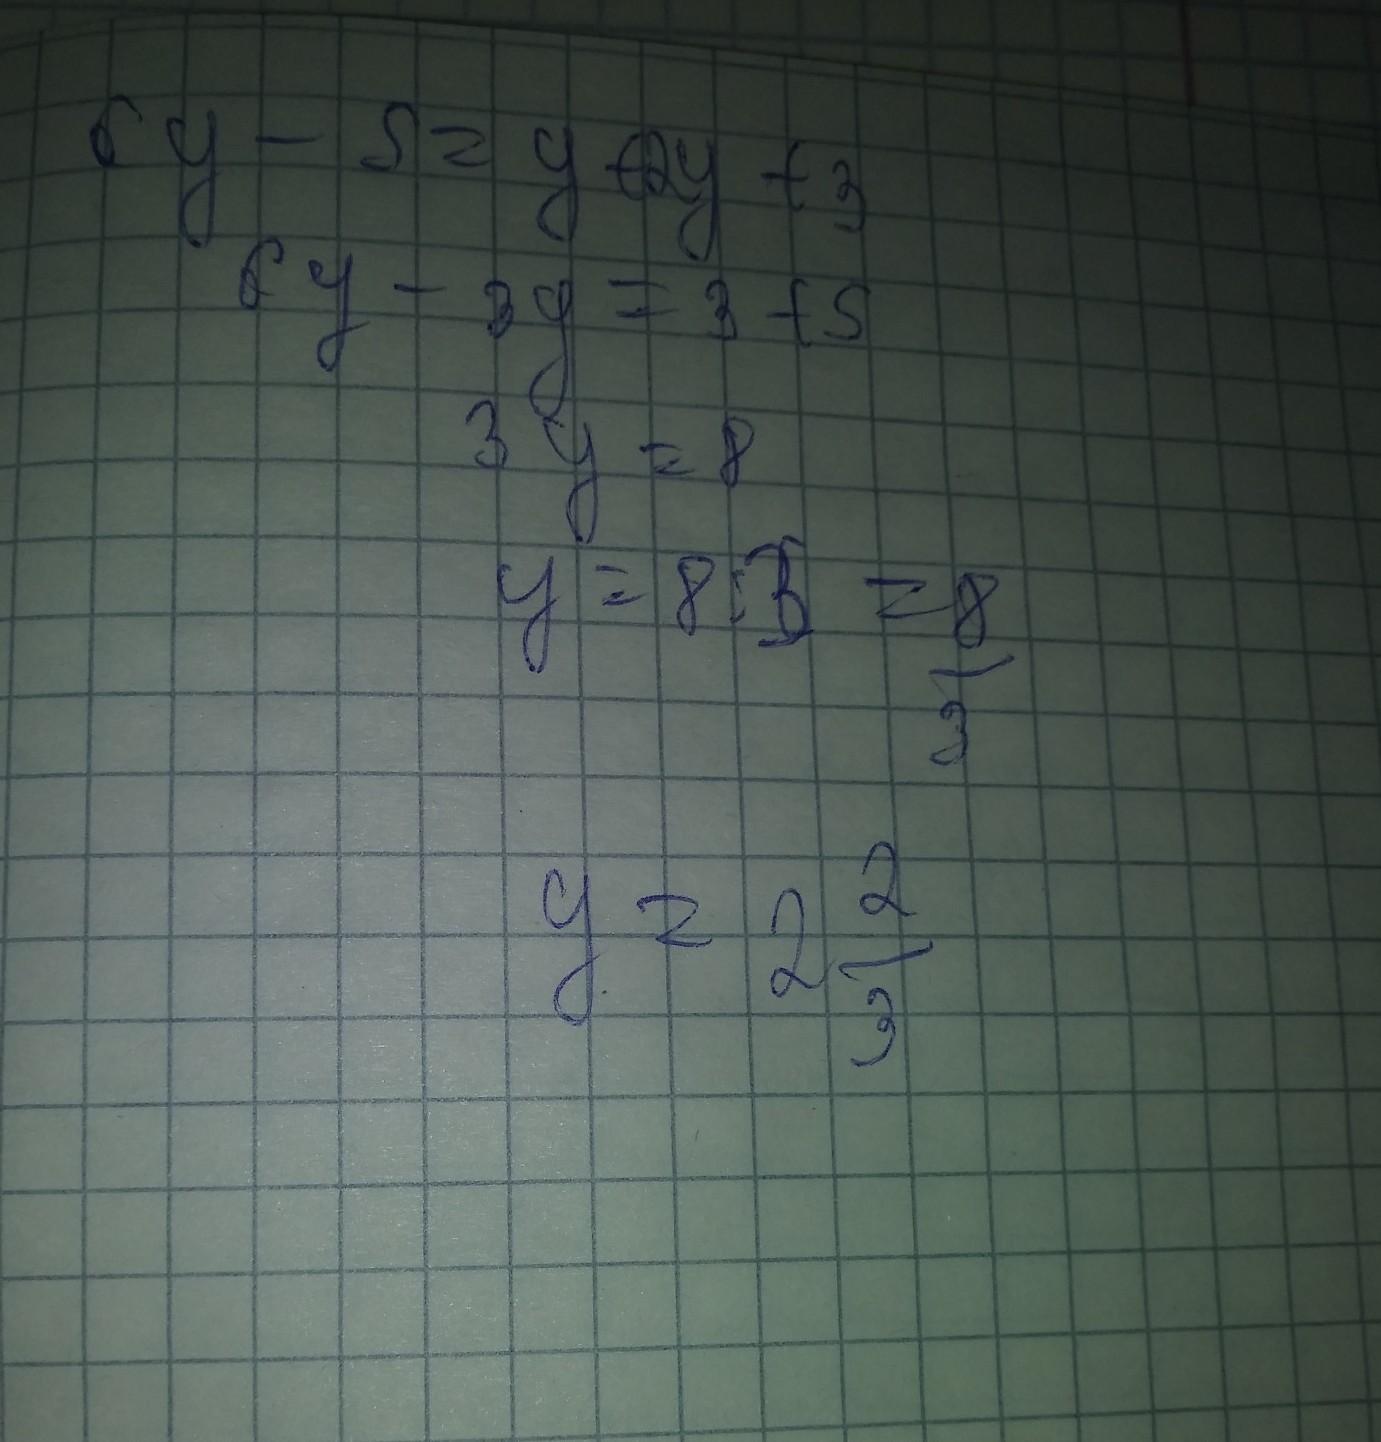 6y - 5 = y + 2y + 3
6y - 3y = 3 + 5
3y = 8
y = 8 : 3 = 8/3
y = 2 2/3